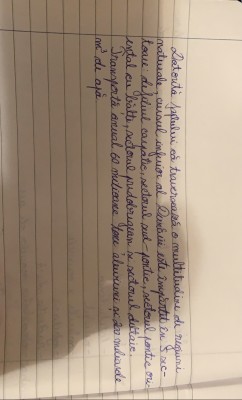 Datorită faptului că traversează o multitudine de regiuni
naturale, cursul inferior al Dunării este împărțit în 5 sec-
toare: defileul carpatic, sectorul sud-pontic, sectorul pontic ori-
ental cu bălți, sectorul predobrogean și sectorul deltaic.
Transportă anual 60 milioane tone aluviuni și 200 miliarde
m³ de apă